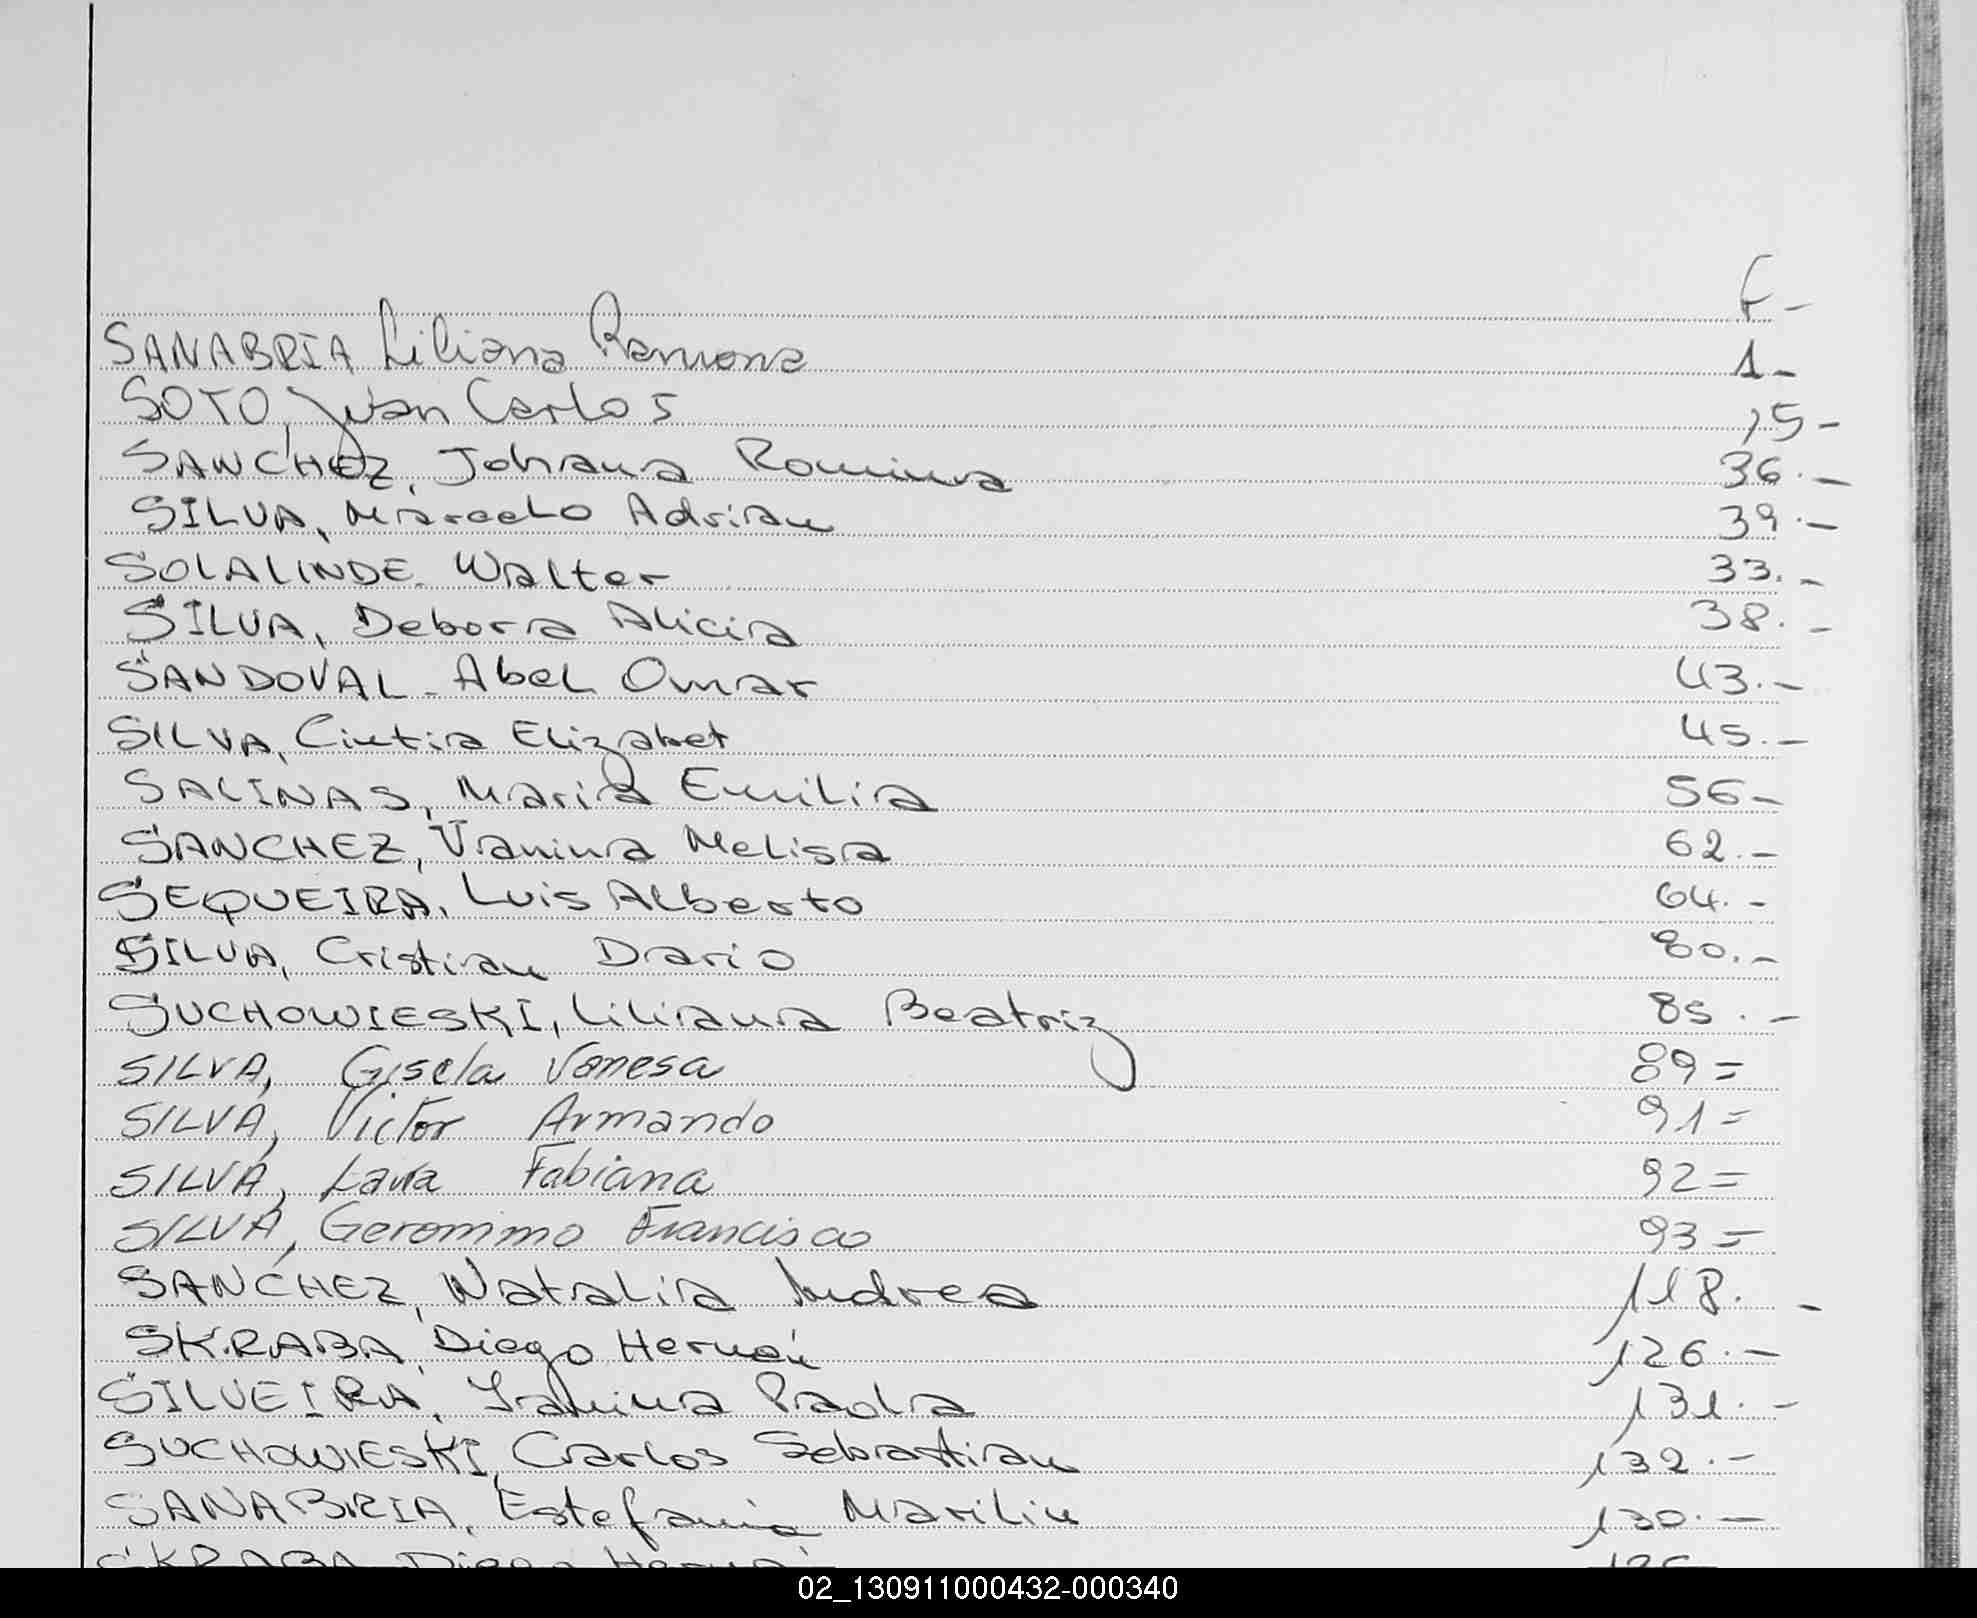 F-
SANABRIA Liliana Ramona 1-
SOTO, Juan Carlos 15-
SANCHEZ, Johana Romina 36.-
SILVA, Marcelo Adrian 39.-
SOLALINDE. Walter 33.-
SILVA, Debora Alicia 38.-
SANDOVAL - Abel Omar 43.-
SILVA, Cintia Elizabet 45.-
SALINAS, Maria Emilia 56-
SANCHEZ, Vanina Melisa 62.-
SEQUEIRA, Luis Alberto 64.-
SILVA, Cristian Dario 80.-
SUCHOWIESKI, Liliana Beatriz 85.-
SILVA, Gisela Vanesa 89=
SILVA, Victor Armando 91=
SILVA, Laura Fabiana 92=
SILVA, Geronimo Francisco 93=
SANCHEZ, Natalia Andrea 118.-
SKRABA, Diego Hernán 126.-
SILVEIRA, Yanina Paola 131.-
SUCHOWIESKI, Carlos Sebastian 132.-
SANABRIA, Estefania Marilin 130.-
SKRABA Diego Hernán 126
02_130911000432-000340